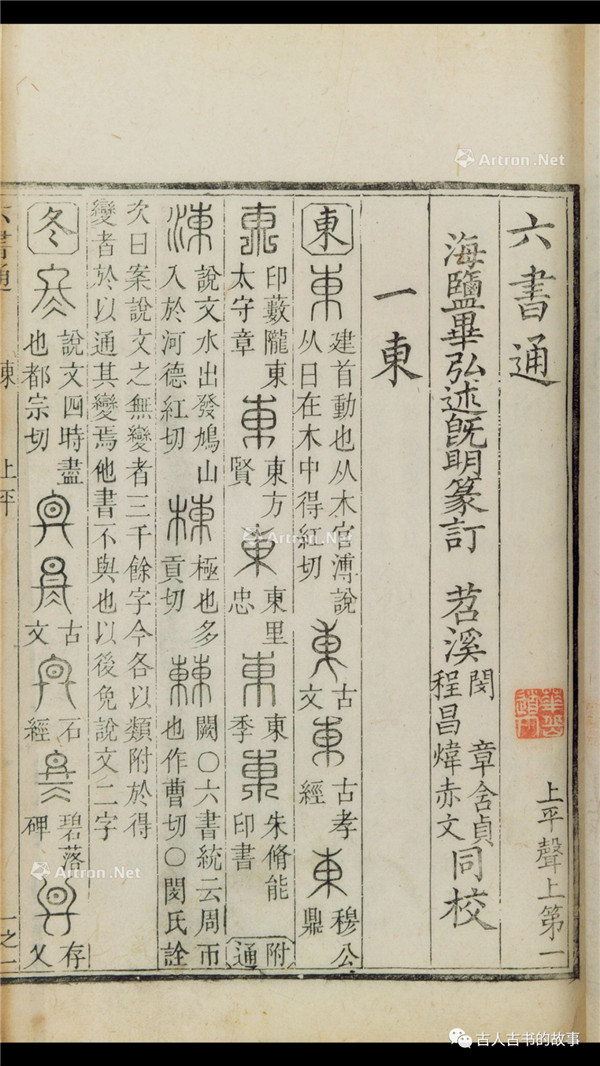 六書通 上平聲上第一
海鹽畢弘述旣明篆訂 苕溪 閔章含貞 程昌煒赤文 同校
一東
東 東 建首動也从木官溥說从日在木中得紅切 東 古文 東 古孝經 東 穆公鼎
東 印藪隴東太守章 東 東方賢 東 東里忠 東 東季 東 朱脩能印書 附通
涷 說文水出發鳩山入於河德紅切 棟 極也多貢切 𣍘 闕〇六書統云周帀也作曹切〇閔氏詮
次曰案說文之無變者三千餘字今各以類附於得
變者於以通其變焉他書不與也以後免說文二字
冬 冬 說文四時盡也都宗切 古文 石經 碧落碑 存乂
六書通 東 上平 一之一
Artron.Net
Artron.Net
Artron.Net
古人古书的故事